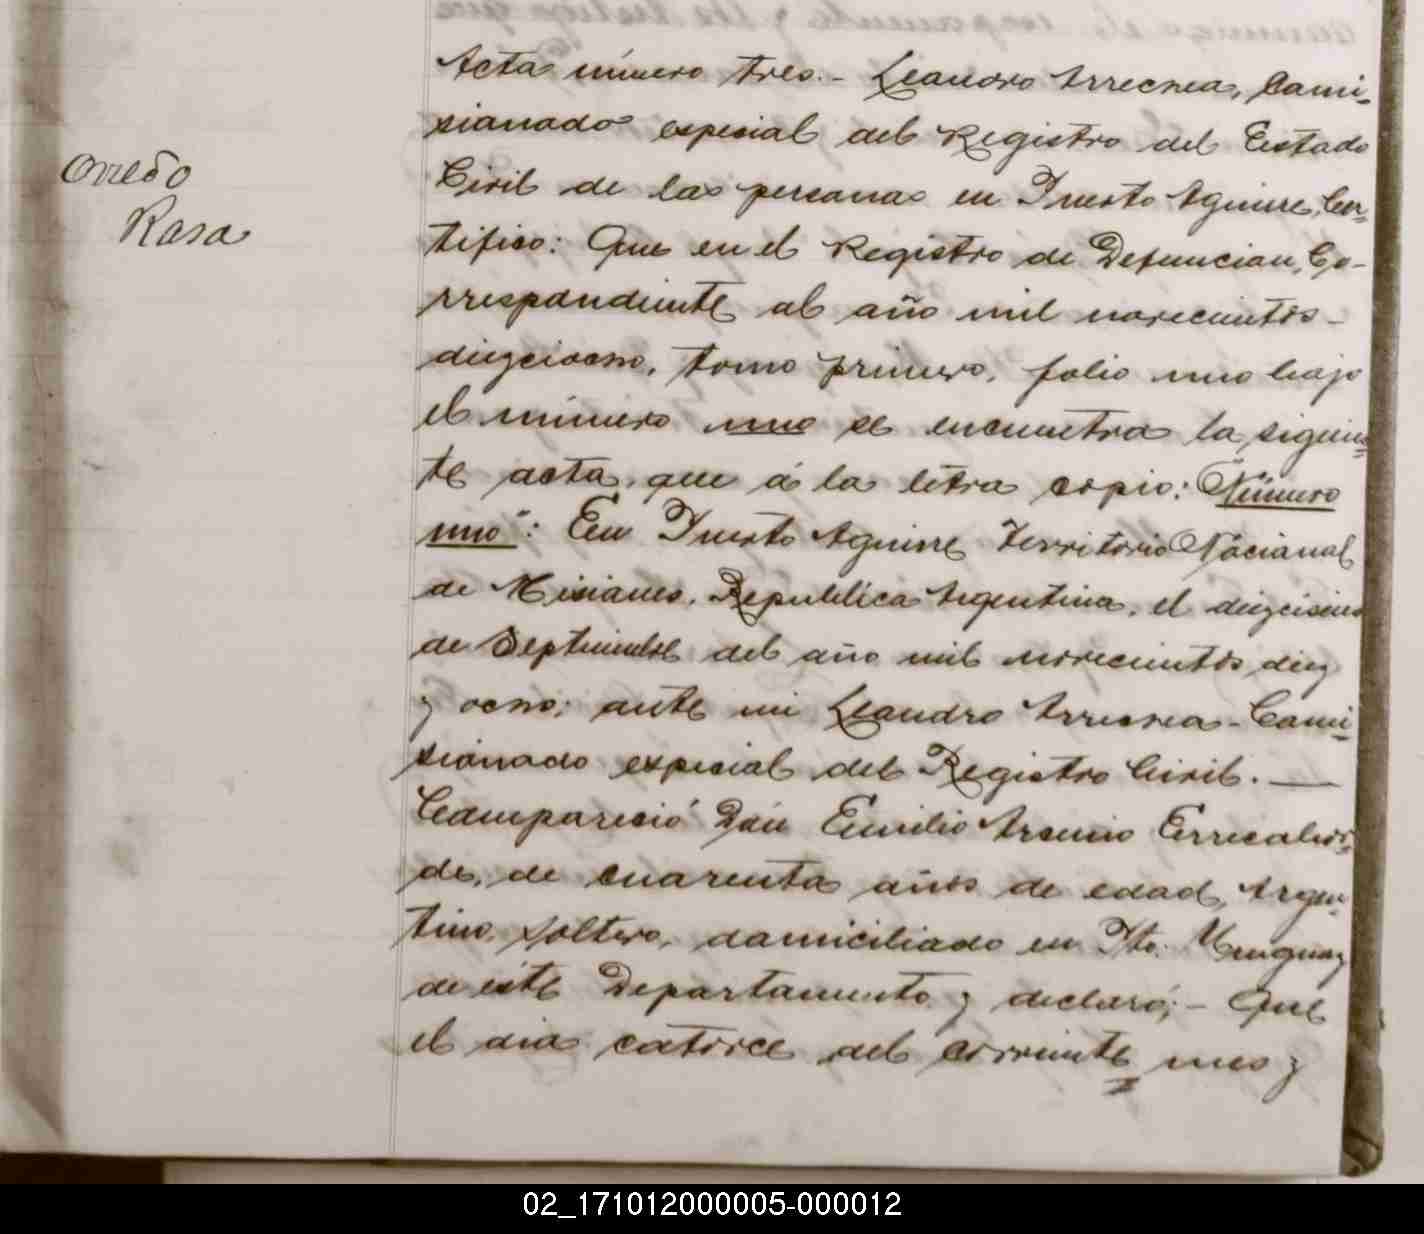 Acta número tres.- Leandro Arrechea, Comi-
sionado especial del Registro del Estado
Civil de las personas en Puerto Aguirre, Cer-
tifico: Que en el Registro de Defunción, Co-
rrespondiente al año mil novecientos-
diezciocho, tomo primero, folio uno bajo
el número uno se encuentra la siguien-
te acta, que á la letra copio: "Número
uno": En Puerto Aguirre Territorio Nacional
de Misiones, Republica Argentina, el diezciseis
de Septiembre del año mil novecientos diez
y ocho; ante mi Leandro Arrechea - Comi-
sionado especial del Registro Civil. —
Compareció Don Emilio Arsenio Errecabor-
de, de cuarenta años de edad, Argen-
tino, soltero, domiciliado en Pto. Uruguay
de este Departamento y declaró; - Que
el dia catorce del corriente mes y
Oviedo
Rosa
02_171012000005-000012